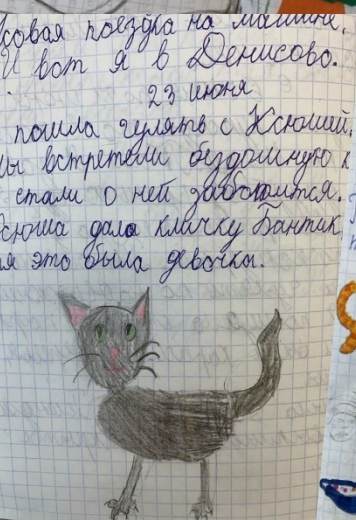 совая поездка на машине.
И вот я в Денисово.
23 июня
пошла гулять с Ксюшей.
ы встретели бездомную к
стали о ней заботится.
сюша дала кличку Бантик,
я это была девочки.